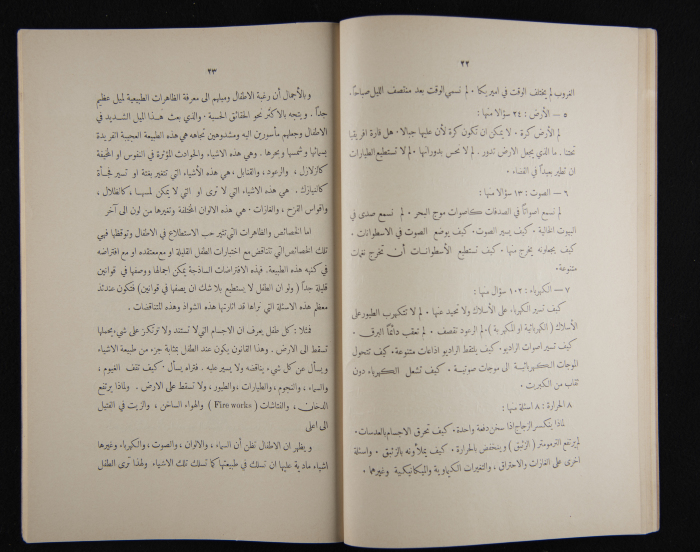 ٢٢
الغروب لم يختلف الوقت في اميريكا . لم نسمي الوقت بعد منتصف الليل صباحاً .
٥ — الأرض : ٢٤ سؤالا منها :
لم الأرض كرة . لا يمكن ان تكون كرة لأن عليها جبالا . هل قارة افريقيا
تحتنا . ما الذي يجعل الارض تدور . لم لا نحس بدورانها . لم لا تستطيع الطيارات
ان تطير بعيداً في الفضاء .
٦ — الصوت : ١٣ سؤالا منها :
لم نسمع اصواتاً في الصدفات كاصوات موج البحر . لم نسمع صدى في
البيوت الخالية . كيف يسير الصوت . كيف يوضع الصوت في الاسطوانات .
كيف يجعلونه يخرج منها . كيف تستطيع الأسطوانات أن تخرج نغمات
متنوعة .
٧ — الكهرباء : ١٠٢ سؤال منها :
كيف تسير الكهرباء على الأسلاك ولا تحيد عنها . لم لا تتكهرب الطيور على
الأسلاك ( الكهربائية او المكهربة ) . لم الرعود تقصف . لم تعقب دائماً البرق .
كيف تسير اصوات الراديو . كيف يلتقط الراديو اذاعات متنوعة . كيف تتحول
الموجات الكهربائية الى موجات صوتية . كيف تشعل الكهرباء دون
ثقاب من الكبريت .
٨ الحرارة : ٨ اسئلة منها :
لماذا ينكسر الزجاج اذا سخن دفعة واحدة . كيف تحرق الاجسام بالعدسات .
لم يرتفع الترمومتر ( الزئبق ) وينخفض بالحرارة . كيف يملأونه بالزئبق . واسئلة
اخرى على الغازات والاحتراق ، والتغيرات الكيماوية والميكانيكية وغيرهما .
٢٣
وبالأجمال أن رغبة الاطفال وميلهم الى معرفة الظاهرات الطبيعية لميل عظيم
جداً . ويتجه بالاكثر نحو الحقائق الحسية . والذي بعث هذا الميل الشديد في
الاطفال وجعلهم مأسورين اليه ومشدوهين تجاهه هي هذه الطبيعة العجيبة الفريدة
بسمائها وشمسها وبحرها . وهي هذه الاشياء والحوادث المؤثرة في النفوس او المخيفة
كالزلازل ، والرعود ، والقنابل ، هي هذه الأشياء التي تتغير بغتة او تسير فجأة
كالنيازك . هي هذه الاشياء التي لا ترى او التي لا يمكن لمسها ، كالظلال ،
واقواس القزح ، والغازات . هي هذه الالوان المختلفة وتغيرها من لون الى آخر
اما الخصائص والظاهرات التي تثير حب الاستطلاع في الاطفال وتوقظها فهي
تلك الخصائص التي تتناقض مع اختبارات الطفل القليلة او مع معتقده او مع افتراضه
في كنهه هذه الطبيعة . فهذه الافتراضات الساذجة يمكن اجمالها ووصفها في قوانين
قليلة جداً ( ولو ان الطفل لا يستطيع بلا شك ان يصفها في قوانين ) فتكون عندئذ
معظم هذه الاسئلة التي نراها قد اثارتها هذه الشواذ وهذه المتناقضات .
فمثلا : كل طفل يعرف ان الاجسام التي لا تستند ولا ترتكز على شيء يحملها
تسقط الى الارض . وهذا القانون يكون عند الطفل بمثابة جزء من طبيعة الاشياء
ويسأل عن كل شيء يناقضه ولا يسير عليه . فتراه يسأل . كيف تقف الغيوم ،
والسماء ، والنجوم ، والطيارات ، والطيور ، ولا تسقط على الارض . ولماذا يرتفع
الدخان ، والنشاشات ( Fire works ) والهواء الساخن ، والزيت في الفتيل
الى اعلى
و يظهر ان الاطفال تظن أن السماء ، والالوان ، والصوت ، والكهرباء وغيرها
اشياء مادية عليها ان تسلك في طبيعتها كما تسلك تلك الاشياء ولهذا ترى الطفل